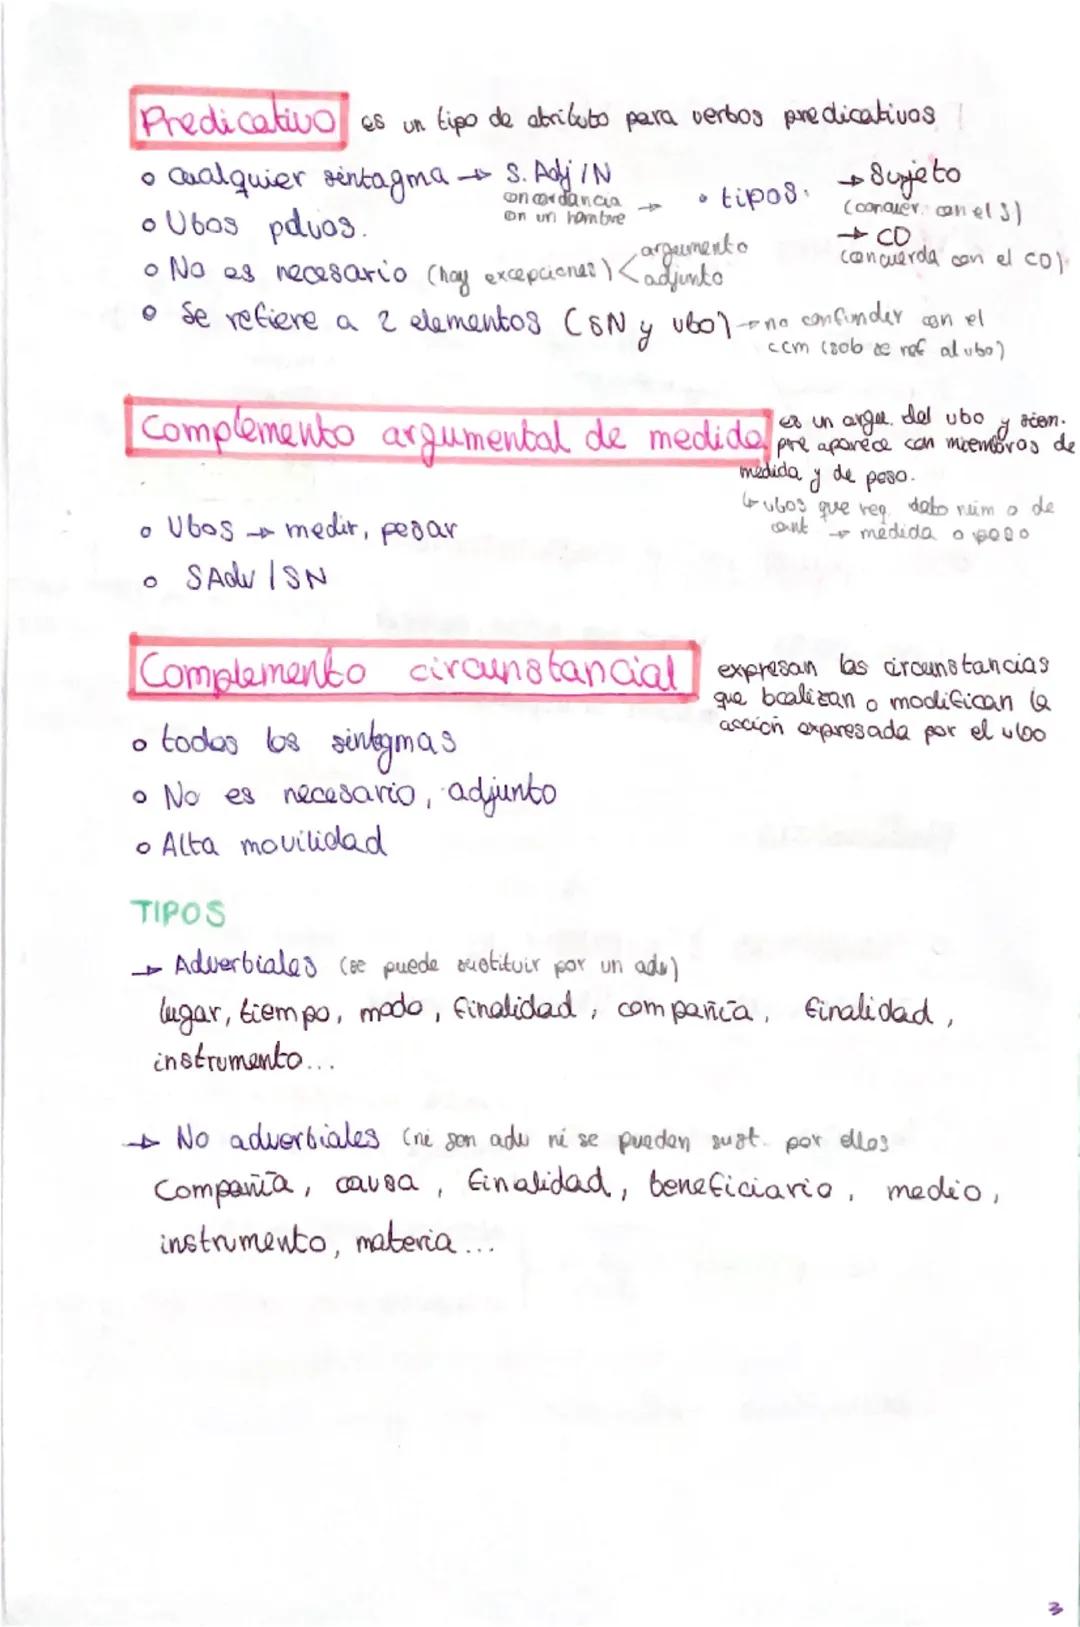 Predicativo es un tipo de atributo para verbos predicativos
o cualquier sintagma → S. Adj / N
concordancia
con un nombre →
• tipos:
→ Sujeto
(concuer. con el S)
→ CD
(concuerda con el CD)
o Vbos pdvos.
o No es necesario (hay excepciones) < argumento
adjunto
o Se refiere a 2 elementos (SN y vbo) → no confundir con el
ccm (solo se ref al vbo)
Complemento argumental de medida es un argu. del vbo y siem-
pre aparece con miembros de
medida y de peso.
↳ vbos que req. dato núm o de
cant → medida o peso
o Vbos → medir, pesar
o SAdv / SN
Complemento circunstancial expresan las circunstancias
que localizan o modifican la
acción expresada por el vbo
o todos los sintagmas
o No es necesario, adjunto
o Alta movilidad
TIPOS
→ Adverbiales (se puede sustituir por un adv)
lugar, tiempo, modo, finalidad, compañía, finalidad,
instrumento...
→ No adverbiales (ni son adv ni se pueden sust. por ellos
Compañía, causa, finalidad, beneficiario, medio,
instrumento, materia...
3